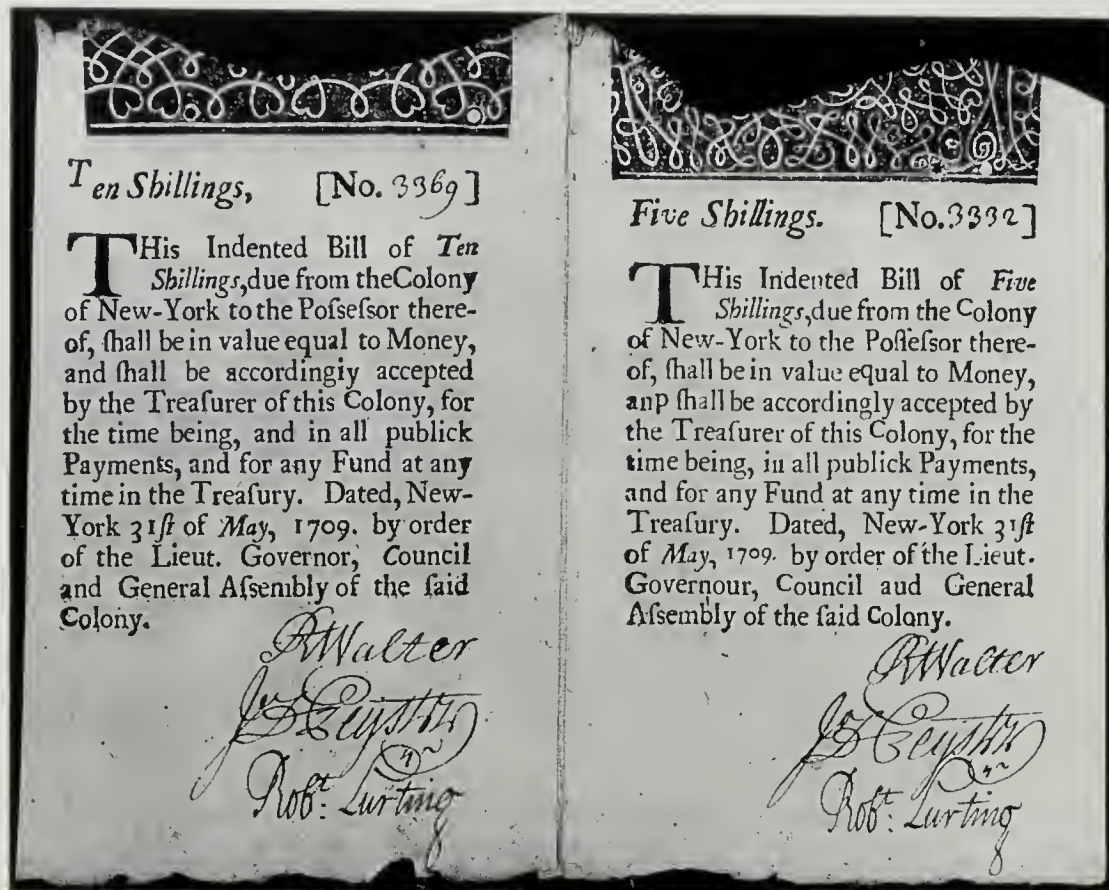 Ten Shillings, [No. 3369]
THis Indented Bill of Ten
Shillings,due from theColony
of New-York to the Poſseſsor there-
of, ſhall be in value equal to Money,
and ſhall be accordingiy accepted
by the Treaſurer of this Colony, for
the time being, and in all publick
Payments, and for any Fund at any
time in the Treaſury. Dated, New-
York 31ſt of May, 1709. by order
of the Lieut. Governor, Council
and General Aſsembly of the ſaid
Colony.
RtWalter
Robt: Lurting
Five Shillings. [No.3332]
THis Indented Bill of Five
Shillings,due from the Colony
of New-York to the Poſſeſsor there-
of, ſhall be in value equal to Money,
anp ſhall be accordingly accepted by
the Treaſurer of this Colony, for the
time being, in all publick Payments,
and for any Fund at any time in the
Treaſury. Dated, New-York 31ſt
of May, 1709. by order of the Lieut.
Governour, Council aud General
Aſsembly of the ſaid Colony.
RtWalter
Robt: Lurting